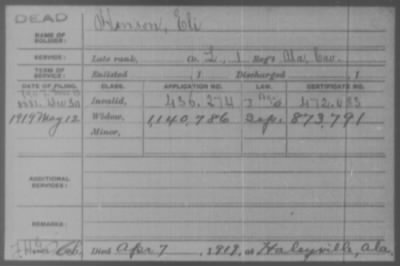 DEAD
NAME OF SOLDIER: Hinson, Eli
SERVICE: Late rank, Co. L, 1 Reg't Ala. Cav.
TERM OF SERVICE: Enlisted , 1 Discharged , 1
DATE OF FILING. CLASS. APPLICATION NO. LAW. CERTIFICATE NO.
Invalid, 436,274
1919 May 12 Widow, 1,140,786 873,791
Minor,
ADDITIONAL SERVICES:
REMARKS:
Died Apr 7, 1919, at Haleyville, Ala.